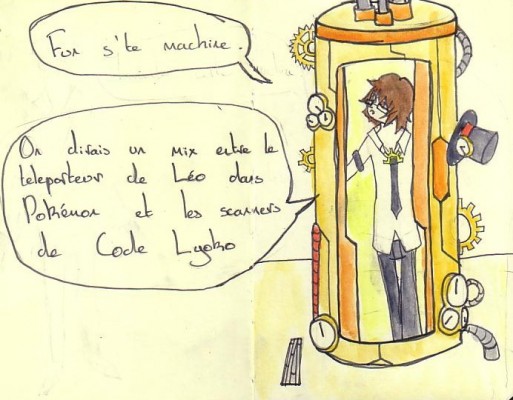 Fun s'te machine.
On dirais un mix entre le
teleporteur de Léo dans
Pokémon et les scanners
de Code Lyoko